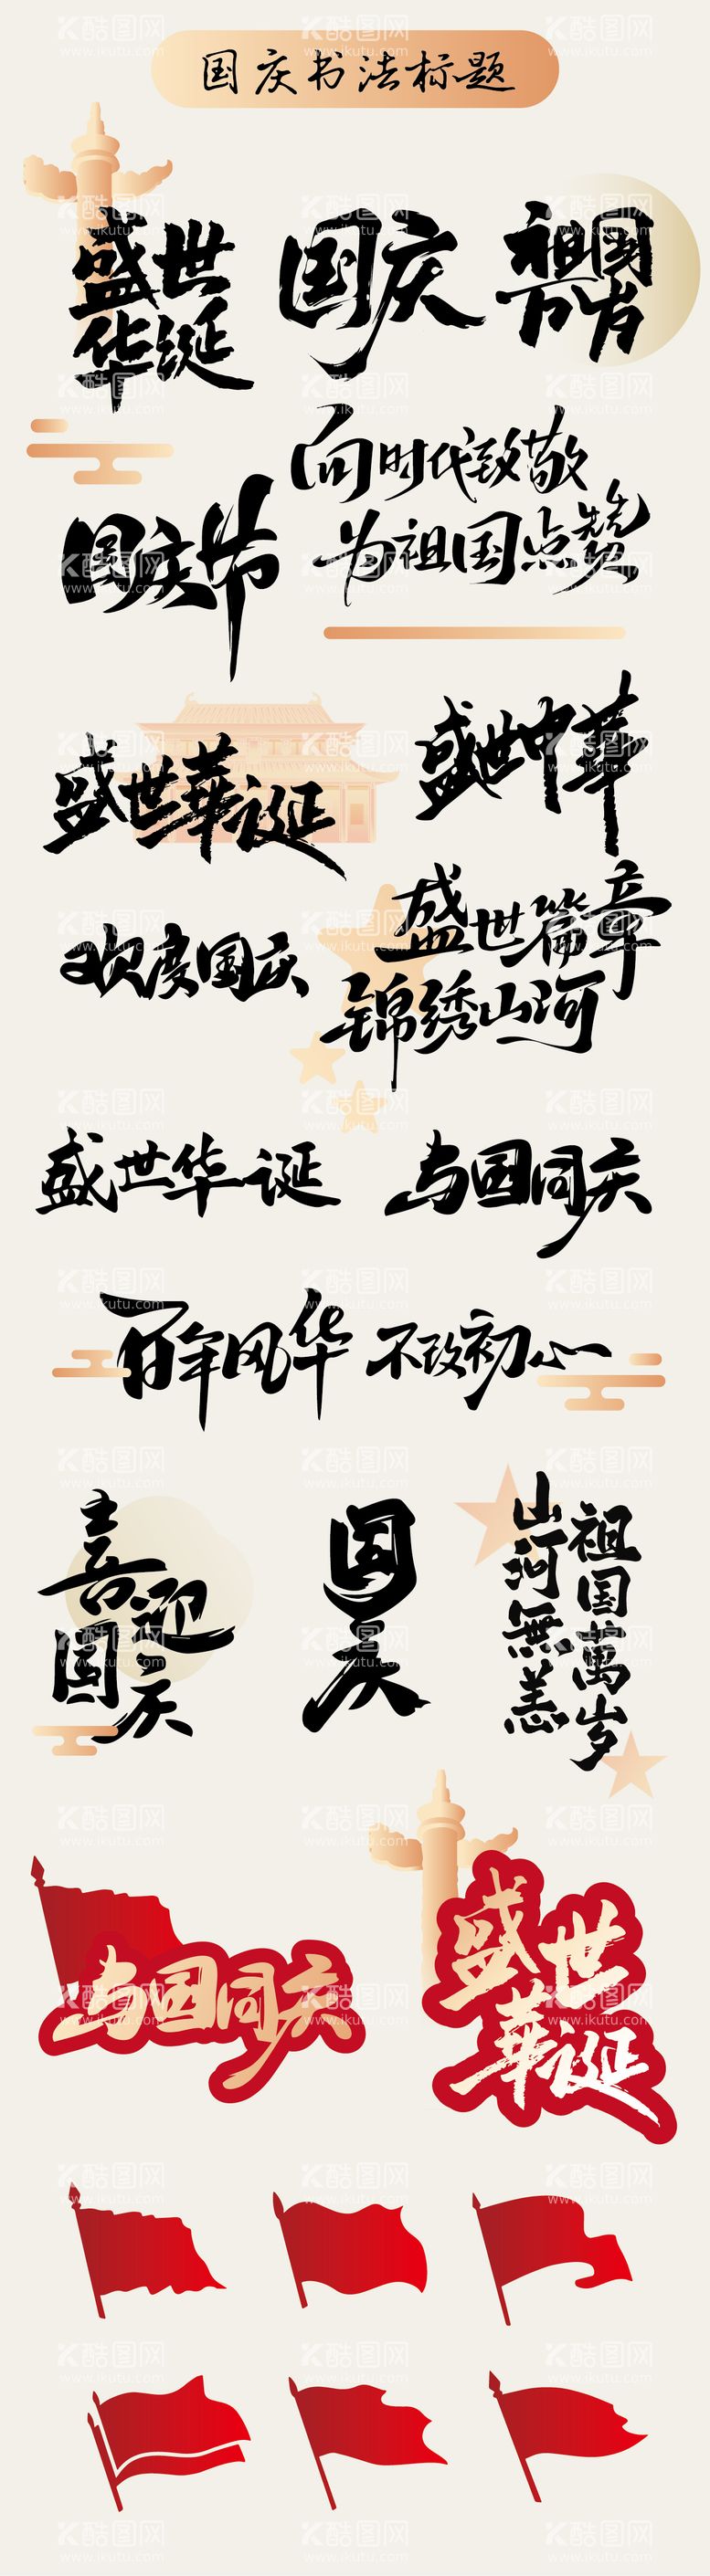 国庆书法标题
盛世
华诞
国庆
祖国
万岁
向时代致敬
为祖国点赞
国庆节
盛世中华
盛世華诞
盛世篇章
锦绣山河
欢度国庆
盛世华诞
与国同庆
百年风华 不改初心
喜迎
国庆
国庆
祖国萬岁
山河無恙
与国同庆
盛世
華诞
酷图网
www.ikutu.com